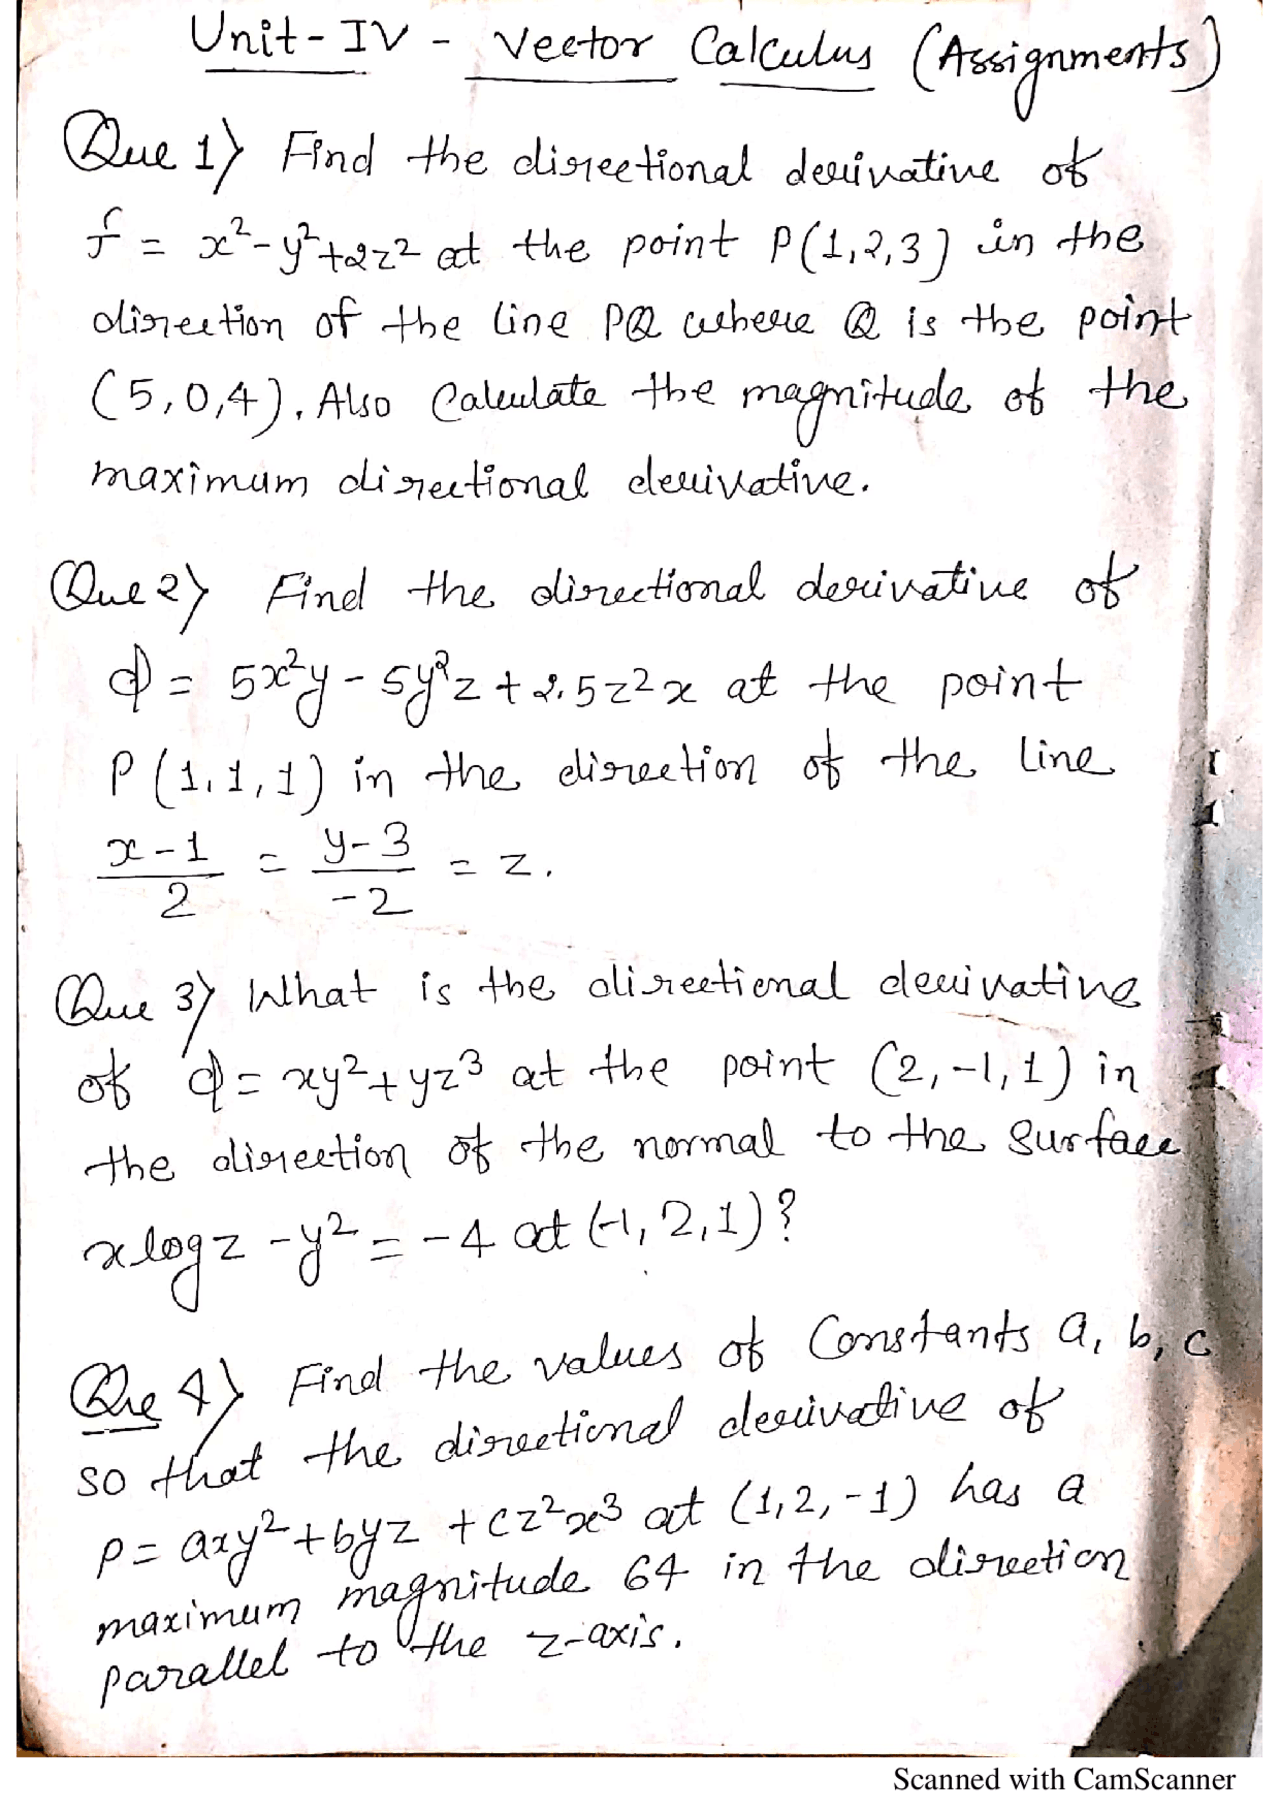 Unit-IV - Vector Calculus (Assignments)
Que 1) Find the directional derivative of
f = x²-y²+2z² at the point P(1,2,3) in the
direction of the line PQ where Q is the point
(5,0,4). Also Calculate the magnitude of the
maximum directional derivative.
Que 2) Find the directional derivative of
ϕ = 5x²y - 5y²z + 2.5z²x at the point
P(1,1,1) in the direction of the line
(x-1)/2 = (y-3)/-2 = z.
Que 3) What is the directional derivative
of ϕ = xy²+yz³ at the point (2,-1,1) in
the direction of the normal to the surface
x log z - y² = -4 at (-1,2,1)?
Que 4) Find the values of Constants a, b, c
so that the directional derivative of
ρ = axy² + byz + cz²x³ at (1,2,-1) has a
maximum magnitude 64 in the direction
parallel to the z-axis.
Scanned with CamScanner